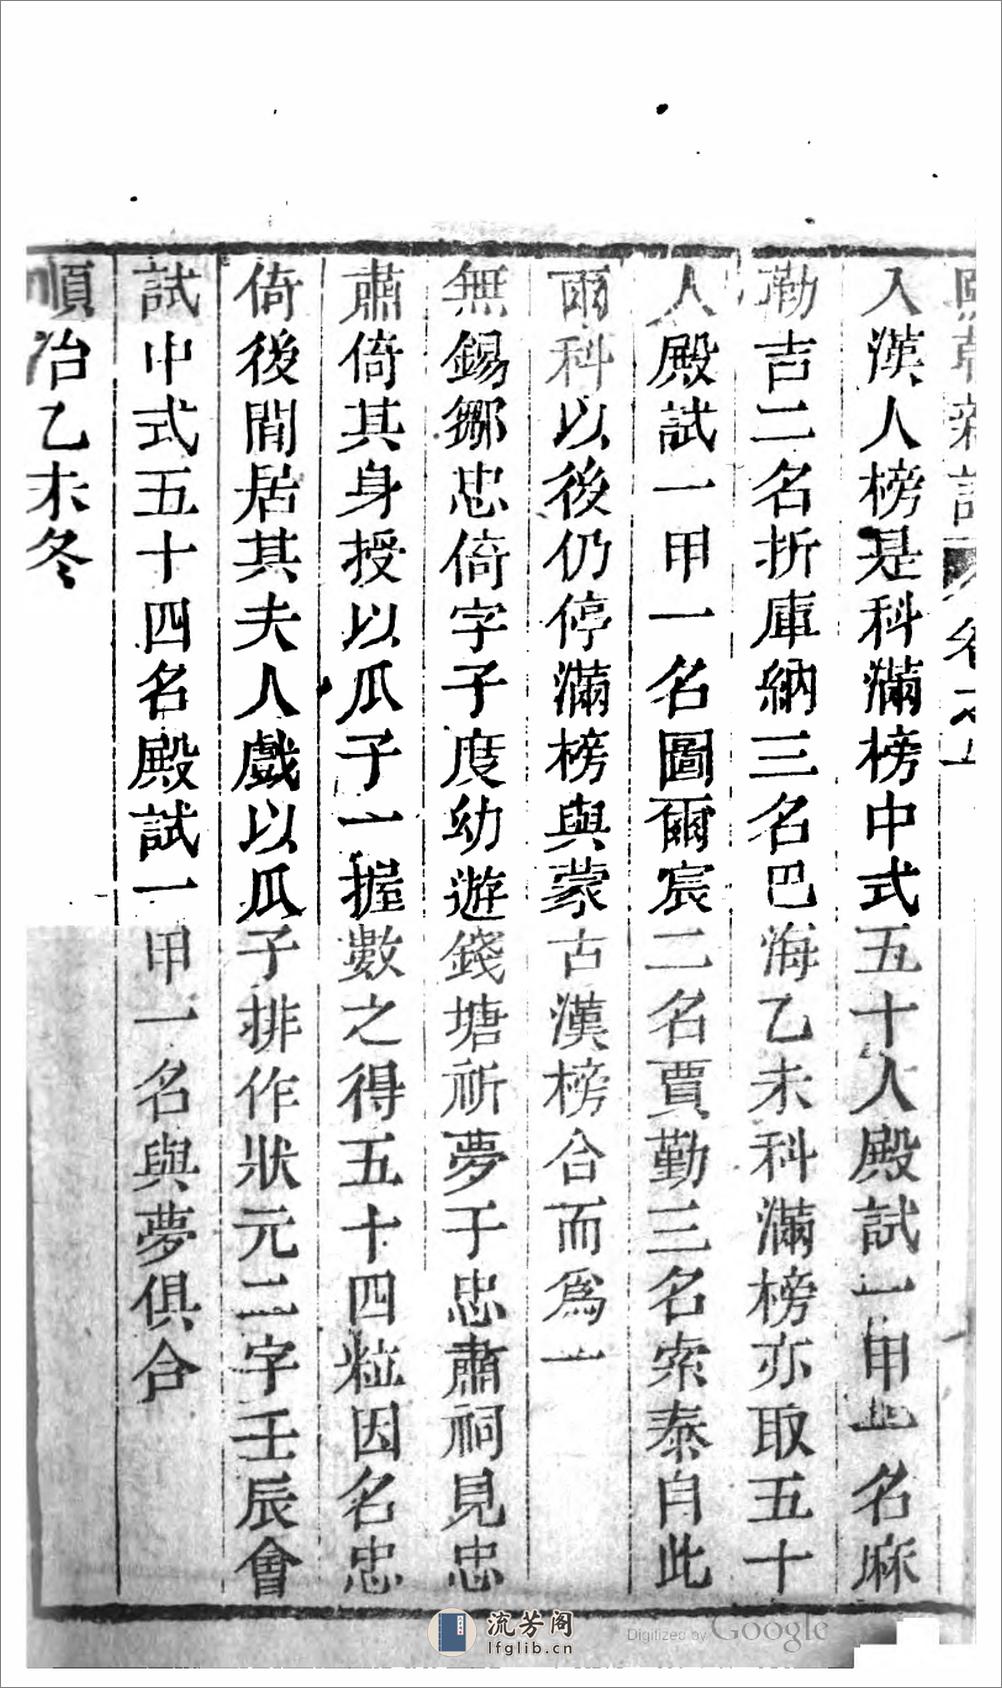 熙朝新語 卷之五
入漢人榜是科滿榜中式五十人殿試一甲一名麻
勒吉二名折庫納三名巴海乙未科滿榜亦取五十
人殿試一甲一名圖爾宸二名賈勤三名索泰自此
兩科以後仍停滿榜與蒙古漢榜合而爲一
無錫鄒忠倚字子度幼遊錢塘祈夢于忠肅祠見忠
肅倚其身授以瓜子一握數之得五十四粒因名忠
倚後閒居其夫人戲以瓜子排作狀元二字壬辰會
試中式五十四名殿試一甲一名與夢俱合
順治乙未冬
流芳阁
lfglib.cn
Digitized by Google